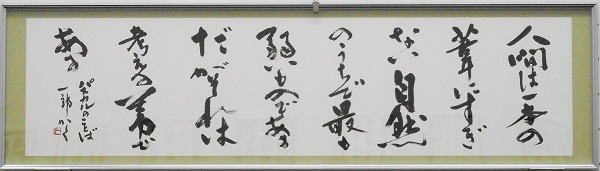 人間は一本の
葦にすぎ
ない自然
のうちで最も
弱いものである
だがそれは
考える葦で
ある
パスカルのことば
一郎かく